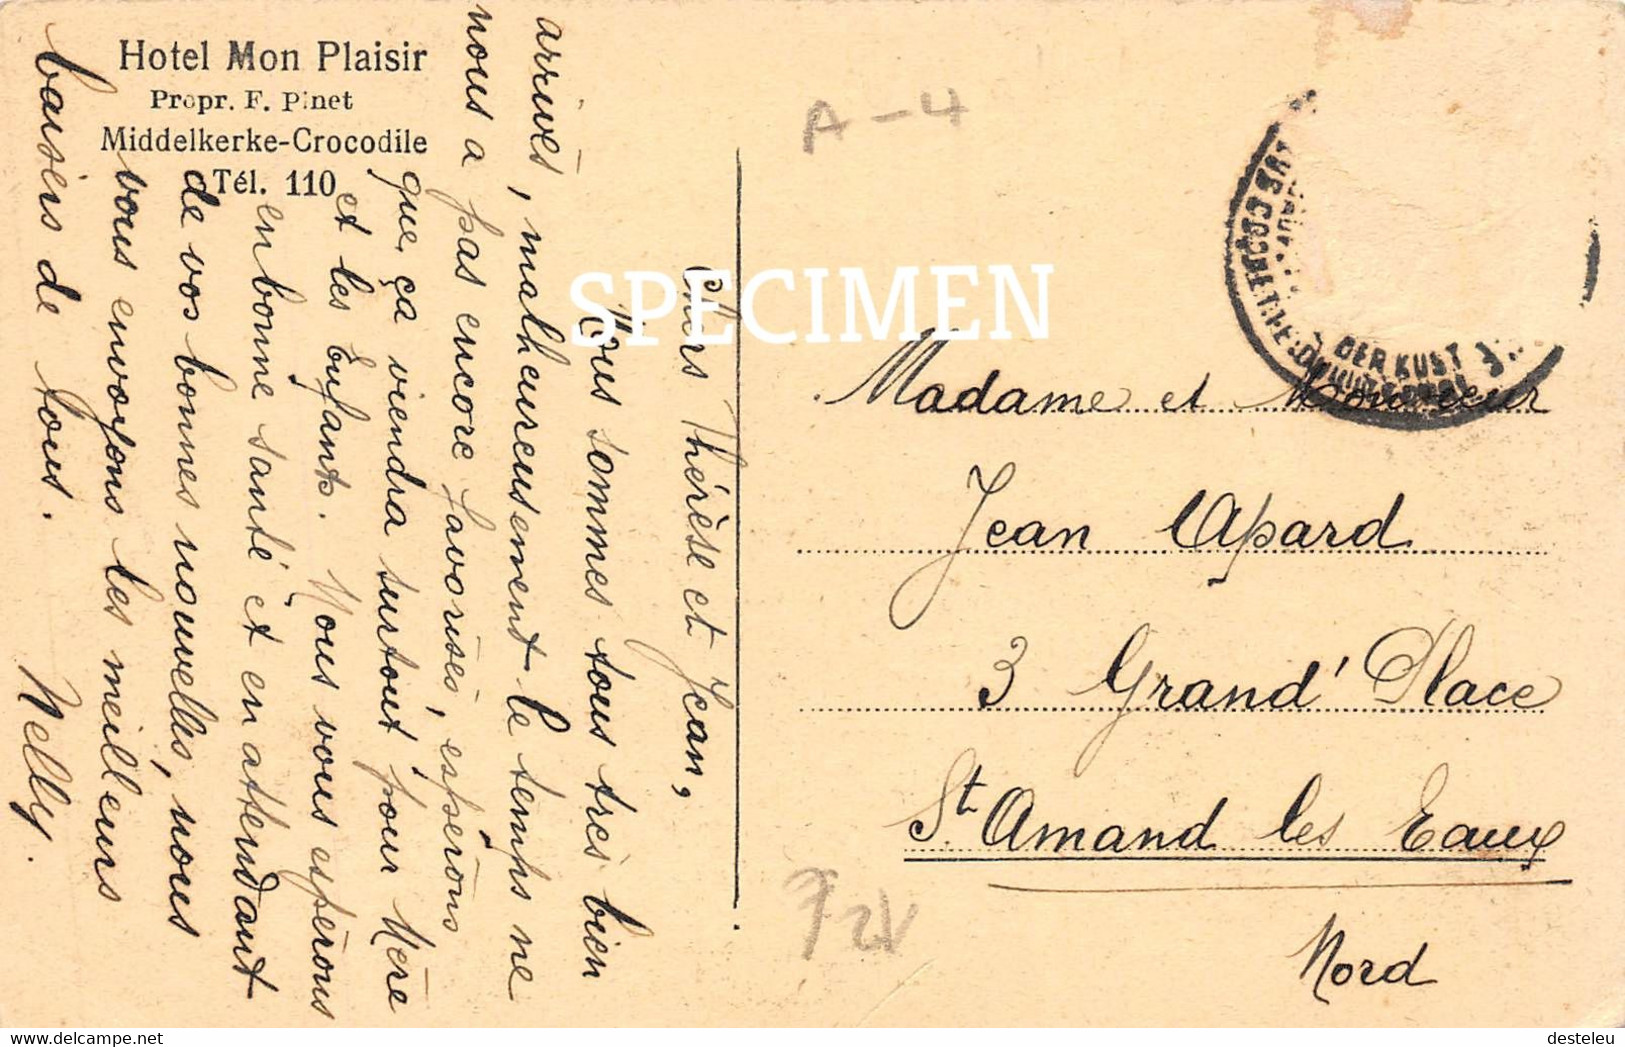 Hotel Mon Plaisir
Propr. F. Pinet
Middelkerke-Crocodile
Tél. 110
A-4
Chers Thérèse et Jean,
Nous sommes tous très bien
arrivés, malheureusement le temps ne
nous a pas encore favorisés, espérons
que ça viendra surtout pour Mère
et les Enfants. Nous vous espérons
en bonne santé et en attendant
de vos bonnes nouvelles, nous
vous envoyons les meilleurs
baisers de tous.
Nelly.
SPECIMEN
DER KUST
Madame et Monsieur
Jean Capard
3 Grand' Place
St Amand les Eaux
Nord
delcampe.net
desteleu